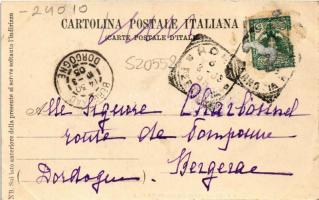 -24010
CARTOLINA POSTALE ITALIANA
(CARTE POSTALE D'ITALIE)
S20552
DORDOGNE
Alle Signore Charbonnel
route de Pomponne
Bergerac
(Dordogne)
NB. Sul lato anteriore della presente si scrive soltanto l'indirizzo